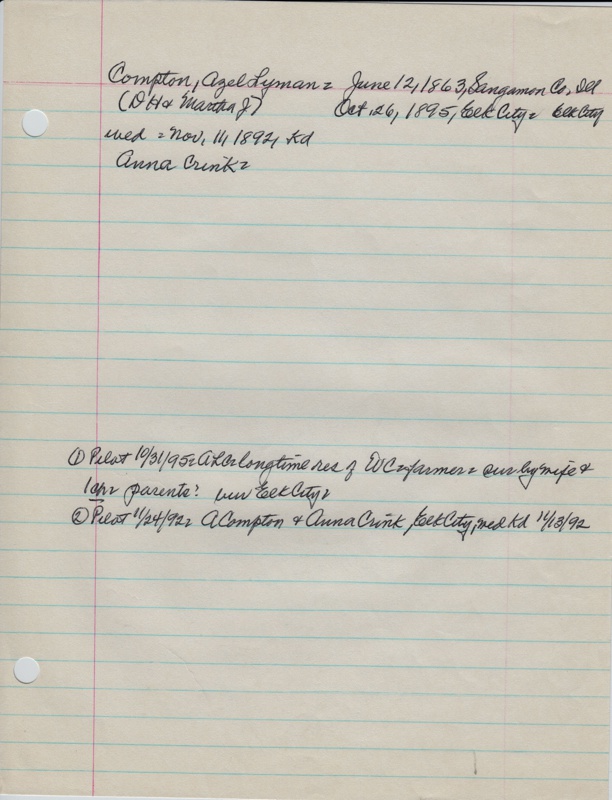 Compton, Azel Lyman = June 12, 1863, Sangamon Co, Ill
(D H & Martha J) Oct. 26, 1895, Elk City = Elk City
wed = Nov. 11, 1892, Kd
Anna Crink =
① Pilot 10/31/95 = ALC = longtime res of WC = farmer = sur by wife &
1 ch = parents: bur Elk City =
② Pilot 11/24/92 = A Compton & Anna Crink, Elk City, wed Kd 11/13/92